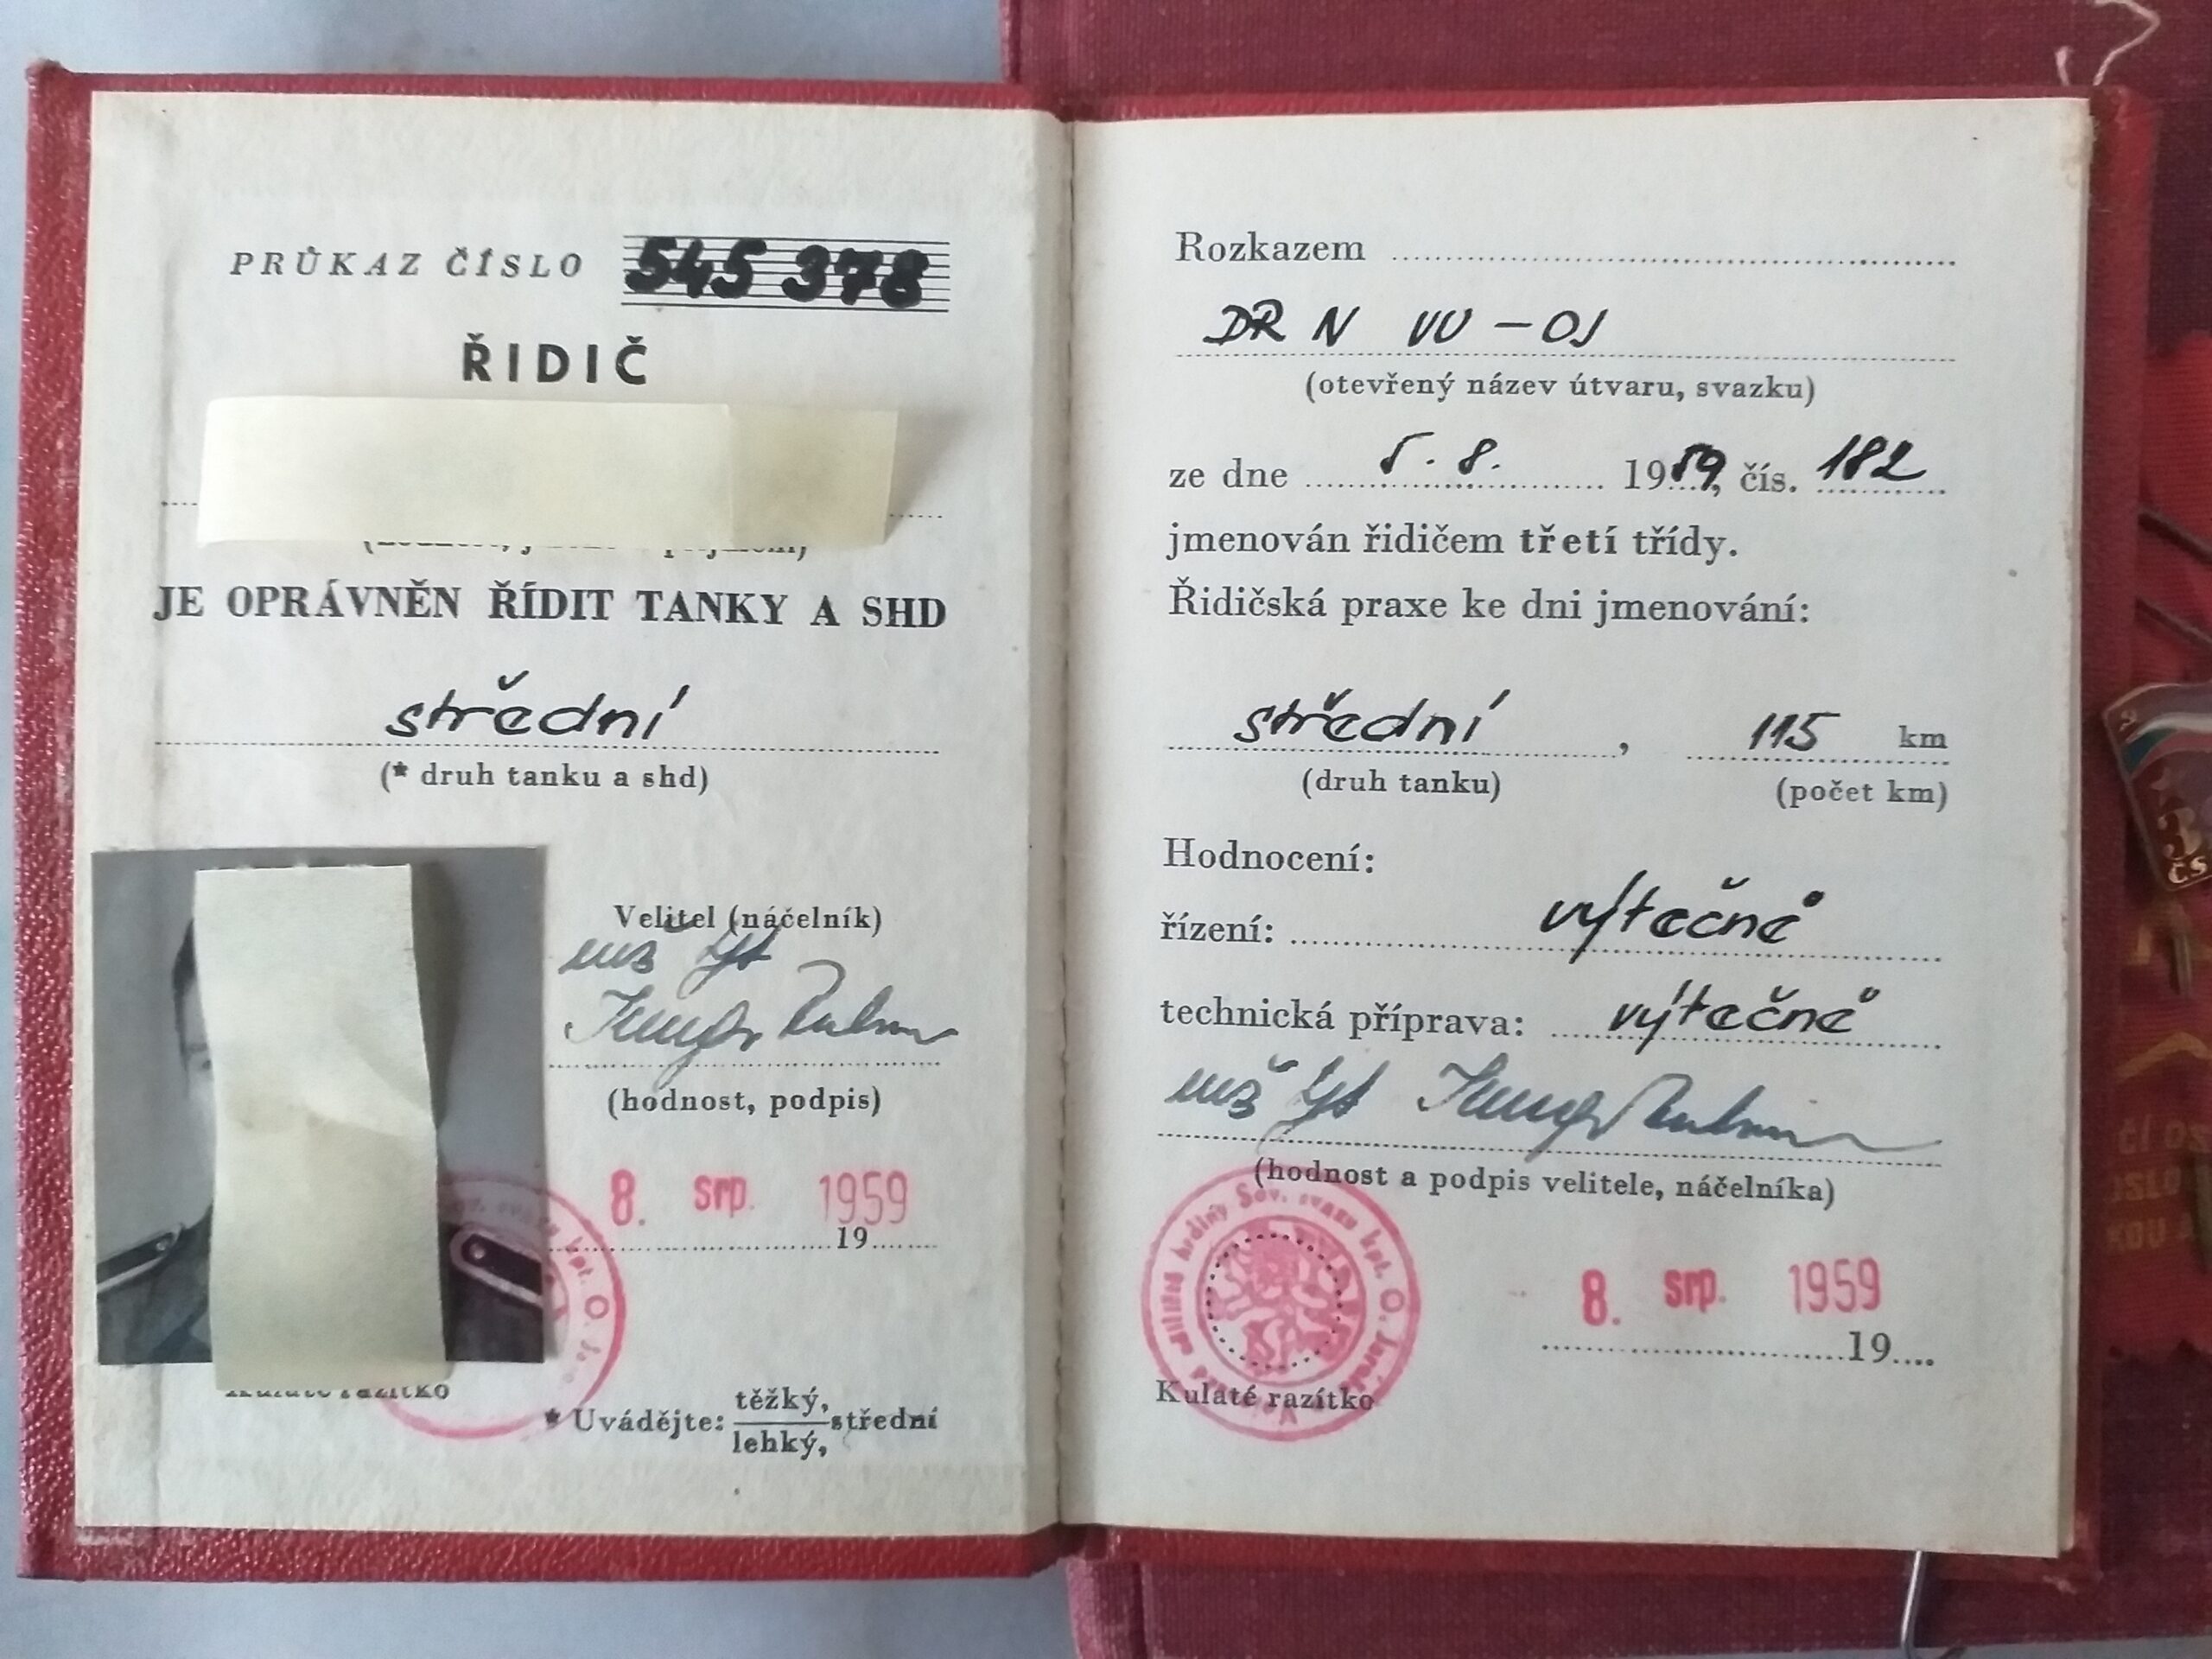 PRŮKAZ ČÍSLO 545 378
ŘIDIČ
JE OPRÁVNĚN ŘÍDIT TANKY A SHD
střední
(* druh tanku a shd)
Velitel (náčelník)
(hodnost, podpis)
8. srp. 1959
19
Kulaté razítko
* Uvádějte: těžký, střední
lehký,
Rozkazem
DR N VU-OJ
(otevřený název útvaru, svazku)
ze dne 5. 8. 1959, čís. 182
jmenován řidičem třetí třídy.
Řidičská praxe ke dni jmenování:
střední, 115 km
(druh tanku) (počet km)
Hodnocení:
řízení: výtečně
technická příprava: výtečně
(hodnost a podpis velitele, náčelníka)
hrdiny Sov. svazu kpt. O. Jaroše
8. srp. 1959
19
Kulaté razítko
ČS